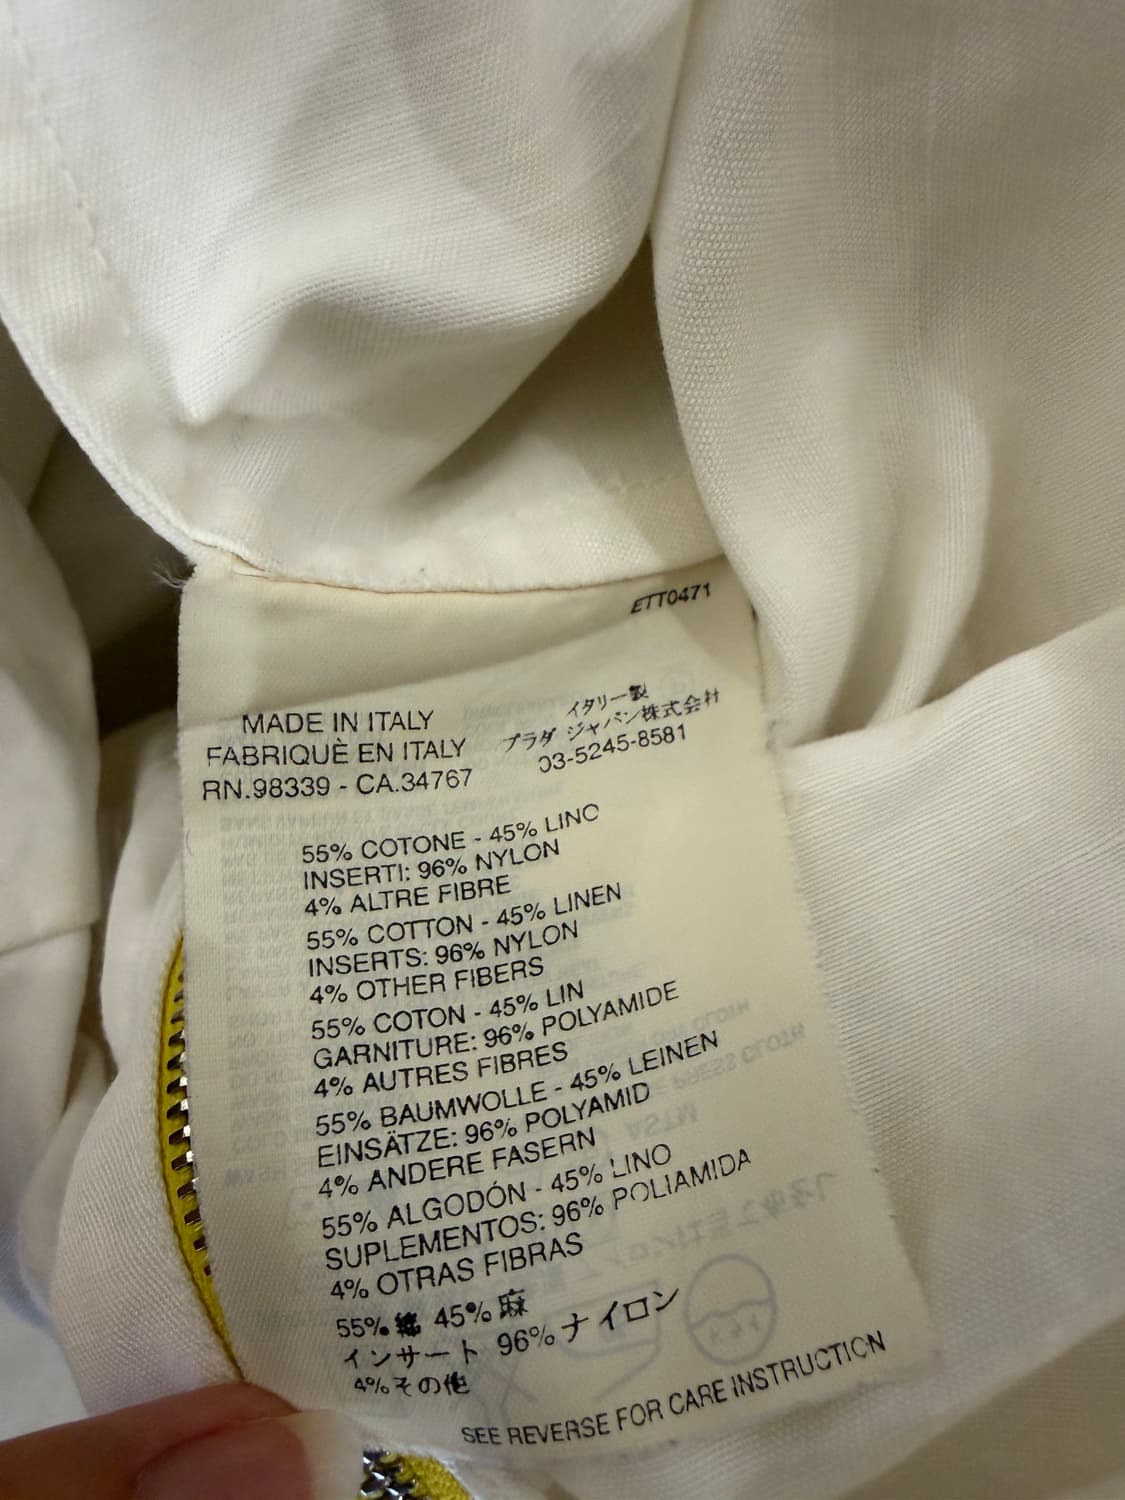 ETT0471
MADE IN ITALY
FABRIQUÈ EN ITALY
RN.98339 - CA.34767
イタリー製
プラダ ジャパン株式会社
03-5245-8581
55% COTONE - 45% LINO
INSERTI: 96% NYLON
4% ALTRE FIBRE
55% COTTON - 45% LINEN
INSERTS: 96% NYLON
4% OTHER FIBERS
55% COTON - 45% LIN
GARNITURE: 96% POLYAMIDE
4% AUTRES FIBRES
55% BAUMWOLLE - 45% LEINEN
EINSÄTZE: 96% POLYAMID
4% ANDERE FASERN
55% ALGODÓN - 45% LINO
SUPLEMENTOS: 96% POLIAMIDA
4% OTRAS FIBRAS
55% 綿 45% 麻
インサート 96% ナイロン
4% その他
SEE REVERSE FOR CARE INSTRUCTION